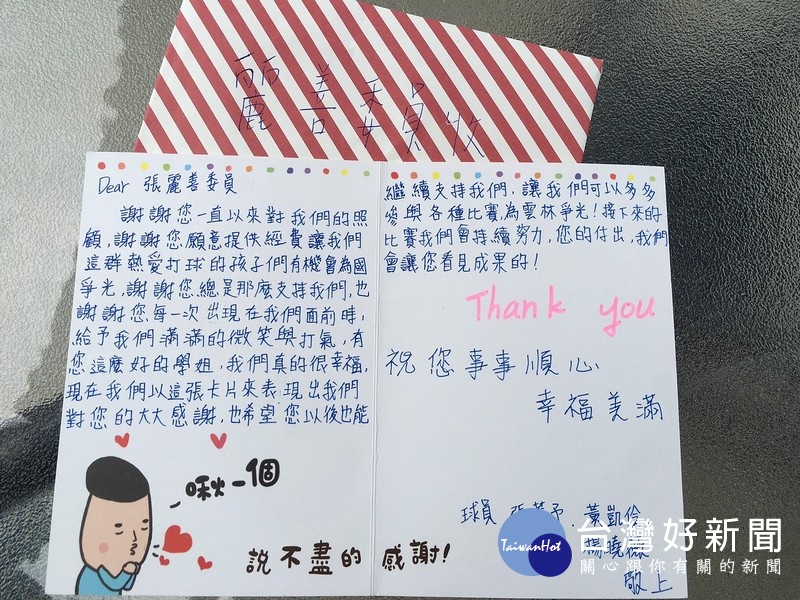 麗善委員收
Dear 張麗善委員
謝謝您一直以來對我們的照
顧,謝謝您願意提供經費讓我們
這群熱愛打球的孩子們有機會為國
爭光,謝謝您總是那麼支持我們,也
謝謝您每一次出現在我們面前時,
給予我們滿滿的微笑與打氣,有
您這麼好的學姐,我們真的很幸福,
現在我們以這張卡片來表現出我們
對您的大大感謝,也希望您以後也能
繼續支持我們,讓我們可以多多
參與各種比賽,為雲林爭光!接下來的
比賽我們會持續努力,您的付出,我們
會讓您看見成果的!
Thank you
祝您事事順心
幸福美滿
啾一個
說不盡的感謝!
球員 張 予、黃凱倫
楊曉薇
敬上
TaiwanHot
台灣好新聞
關心跟你有關的新聞